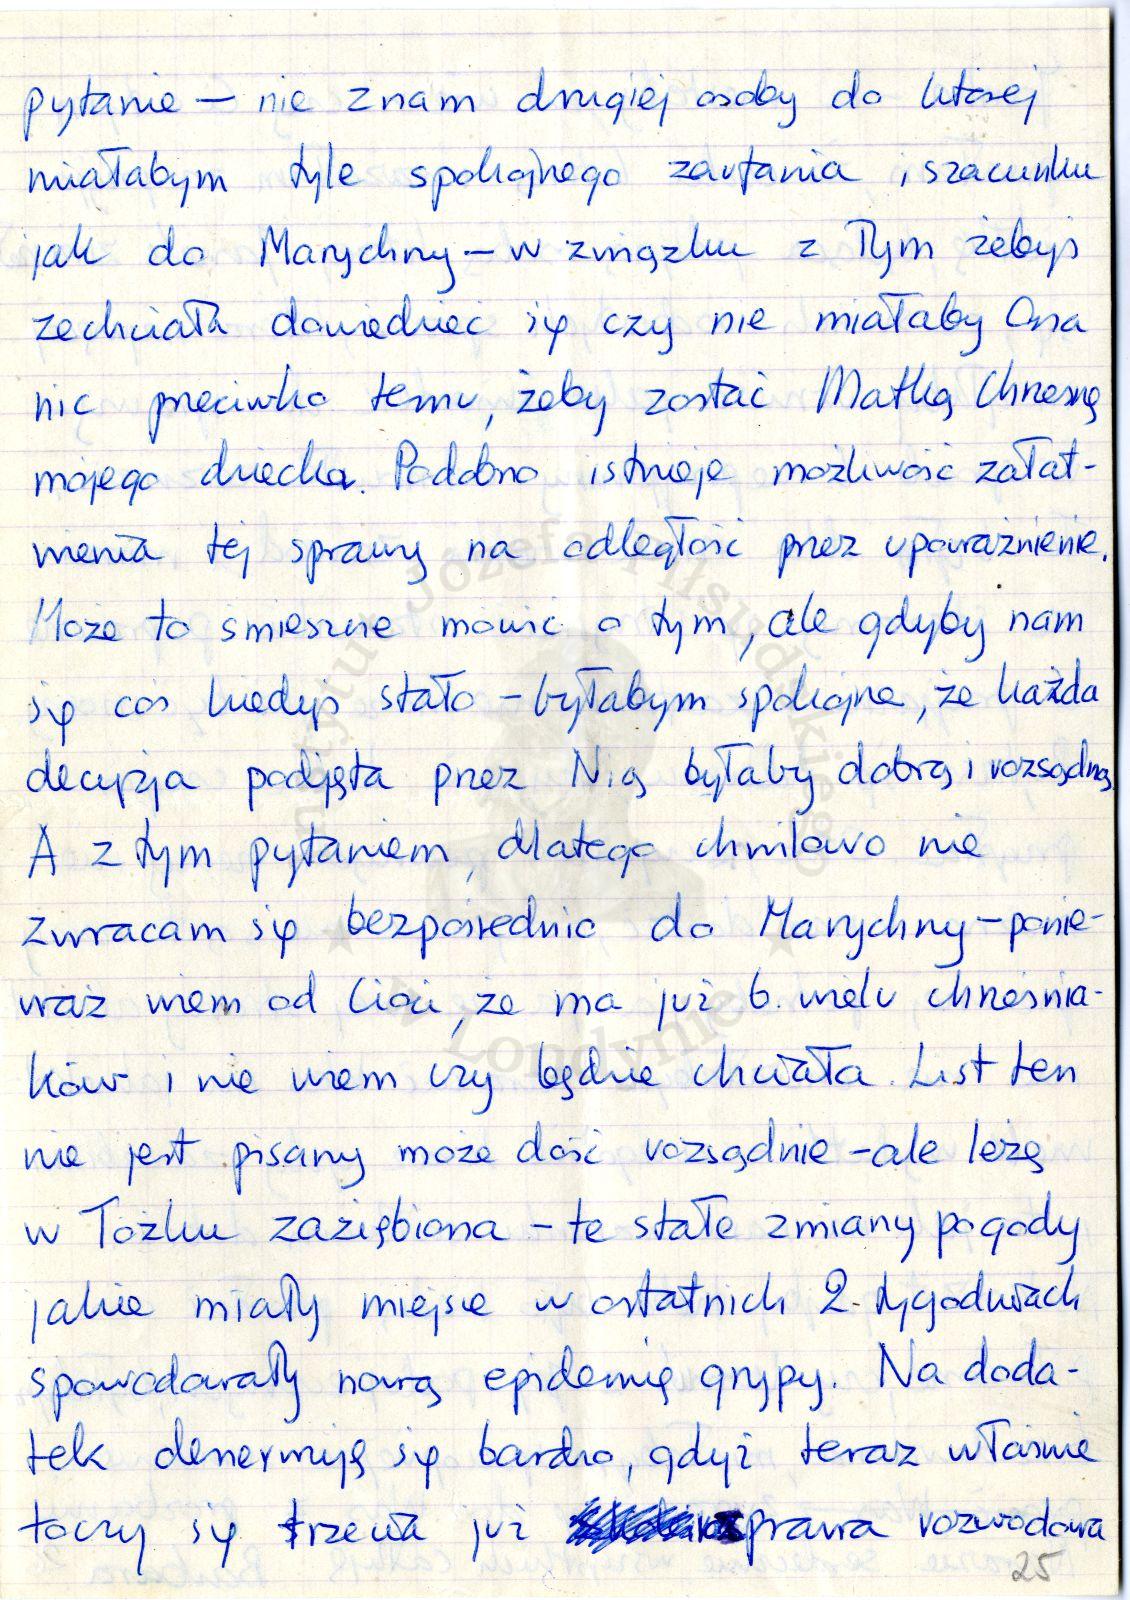 pytanie – nie znam drugiej osoby do której
miałabym tyle spokojnego zaufania i szacunku
jak do Marychny – w związku z Tym żebyś
zechciała dowiedzieć się czy nie miałaby Ona
nic przeciwko temu, żeby zostać Matką Chrzesną
mojego dziecka. Podobno istnieje możliwość załat-
wienia tej sprawy na odległość przez upoważnienie.
Może to śmieszne mówić o tym, ale gdyby nam
się coś kiedyś stało – byłabym spokojna, że każda
decyzja podjęta przez Nią byłaby dobrą i rozsądną.
A z tym pytaniem, dlatego chwilowo nie
zwracam się bezpośrednio do Marychny – ponie-
waż wiem od Cioci, że ma już b. wielu chrześnia-
ków i nie wiem czy będzie chciała. List ten
nie jest pisany może dość rozsądnie – ale leżę
w łóżku zaziębiona – te stałe zmiany pogody
jakie miały miejsce w ostatnich 2. tygodniach
spowodowały nową epidemię grypy. Na doda-
tek denerwuję się bardzo, gdyż teraz właśnie
toczy się trzecia już sprawa rozwodowa
25
Instytut Józefa Piłsudskiego
w Londynie